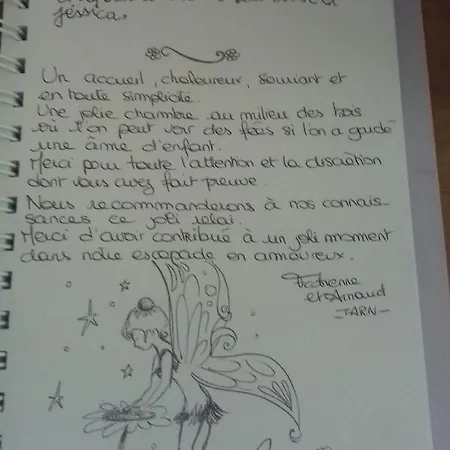 Jessica.
Un accueil, chaleureux, souriant et
en toute simplicité.
Une jolie chambre au milieu des bois
où l'on peut voir des fées si l'on a gardé
une âme d'enfant.
Merci pour toute l'attention et la discrétion
dont vous avez fait preuve.
Nous recommanderons à nos connais-
sances ce joli relai.
Merci d'avoir contribué à un joli moment
dans notre escapade en amoureux.
et Arnaud
-TARN-